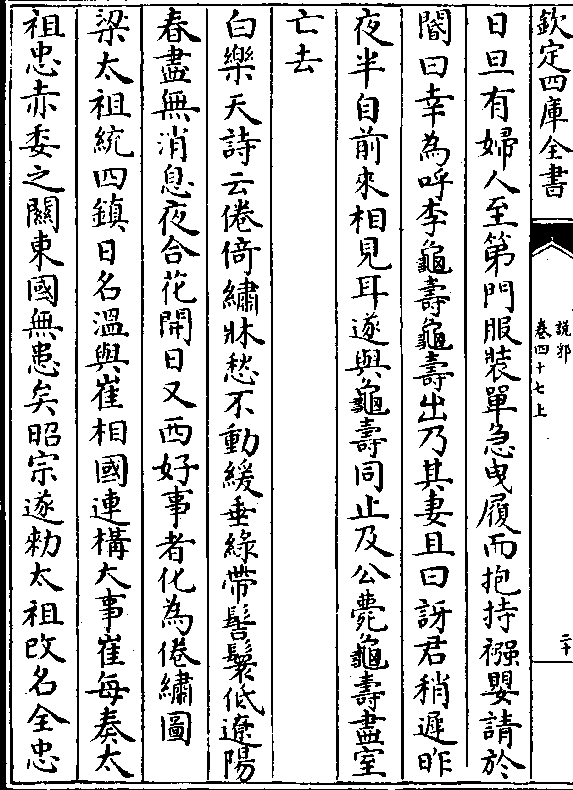 欽定四庫全書
說郛
卷四十七上
二十
日旦有婦人至第門服裝單急曳履而抱持襁嬰請於
閽曰幸為呼李龜壽龜壽出乃其妻且曰訝君稍遲昨
夜半自前來相見耳遂與龜壽同止及公薨龜壽盡室
亡去
白樂天詩云倦倚繡牀愁不動緩垂綠帶髻鬟低遼陽
春盡無消息夜合花開日又西好事者化為倦繡圖
梁太祖統四鎮日名溫與崔相國連構大事崔每奏太
祖忠赤委之關東國無患矣昭宗遂勑太祖改名全忠